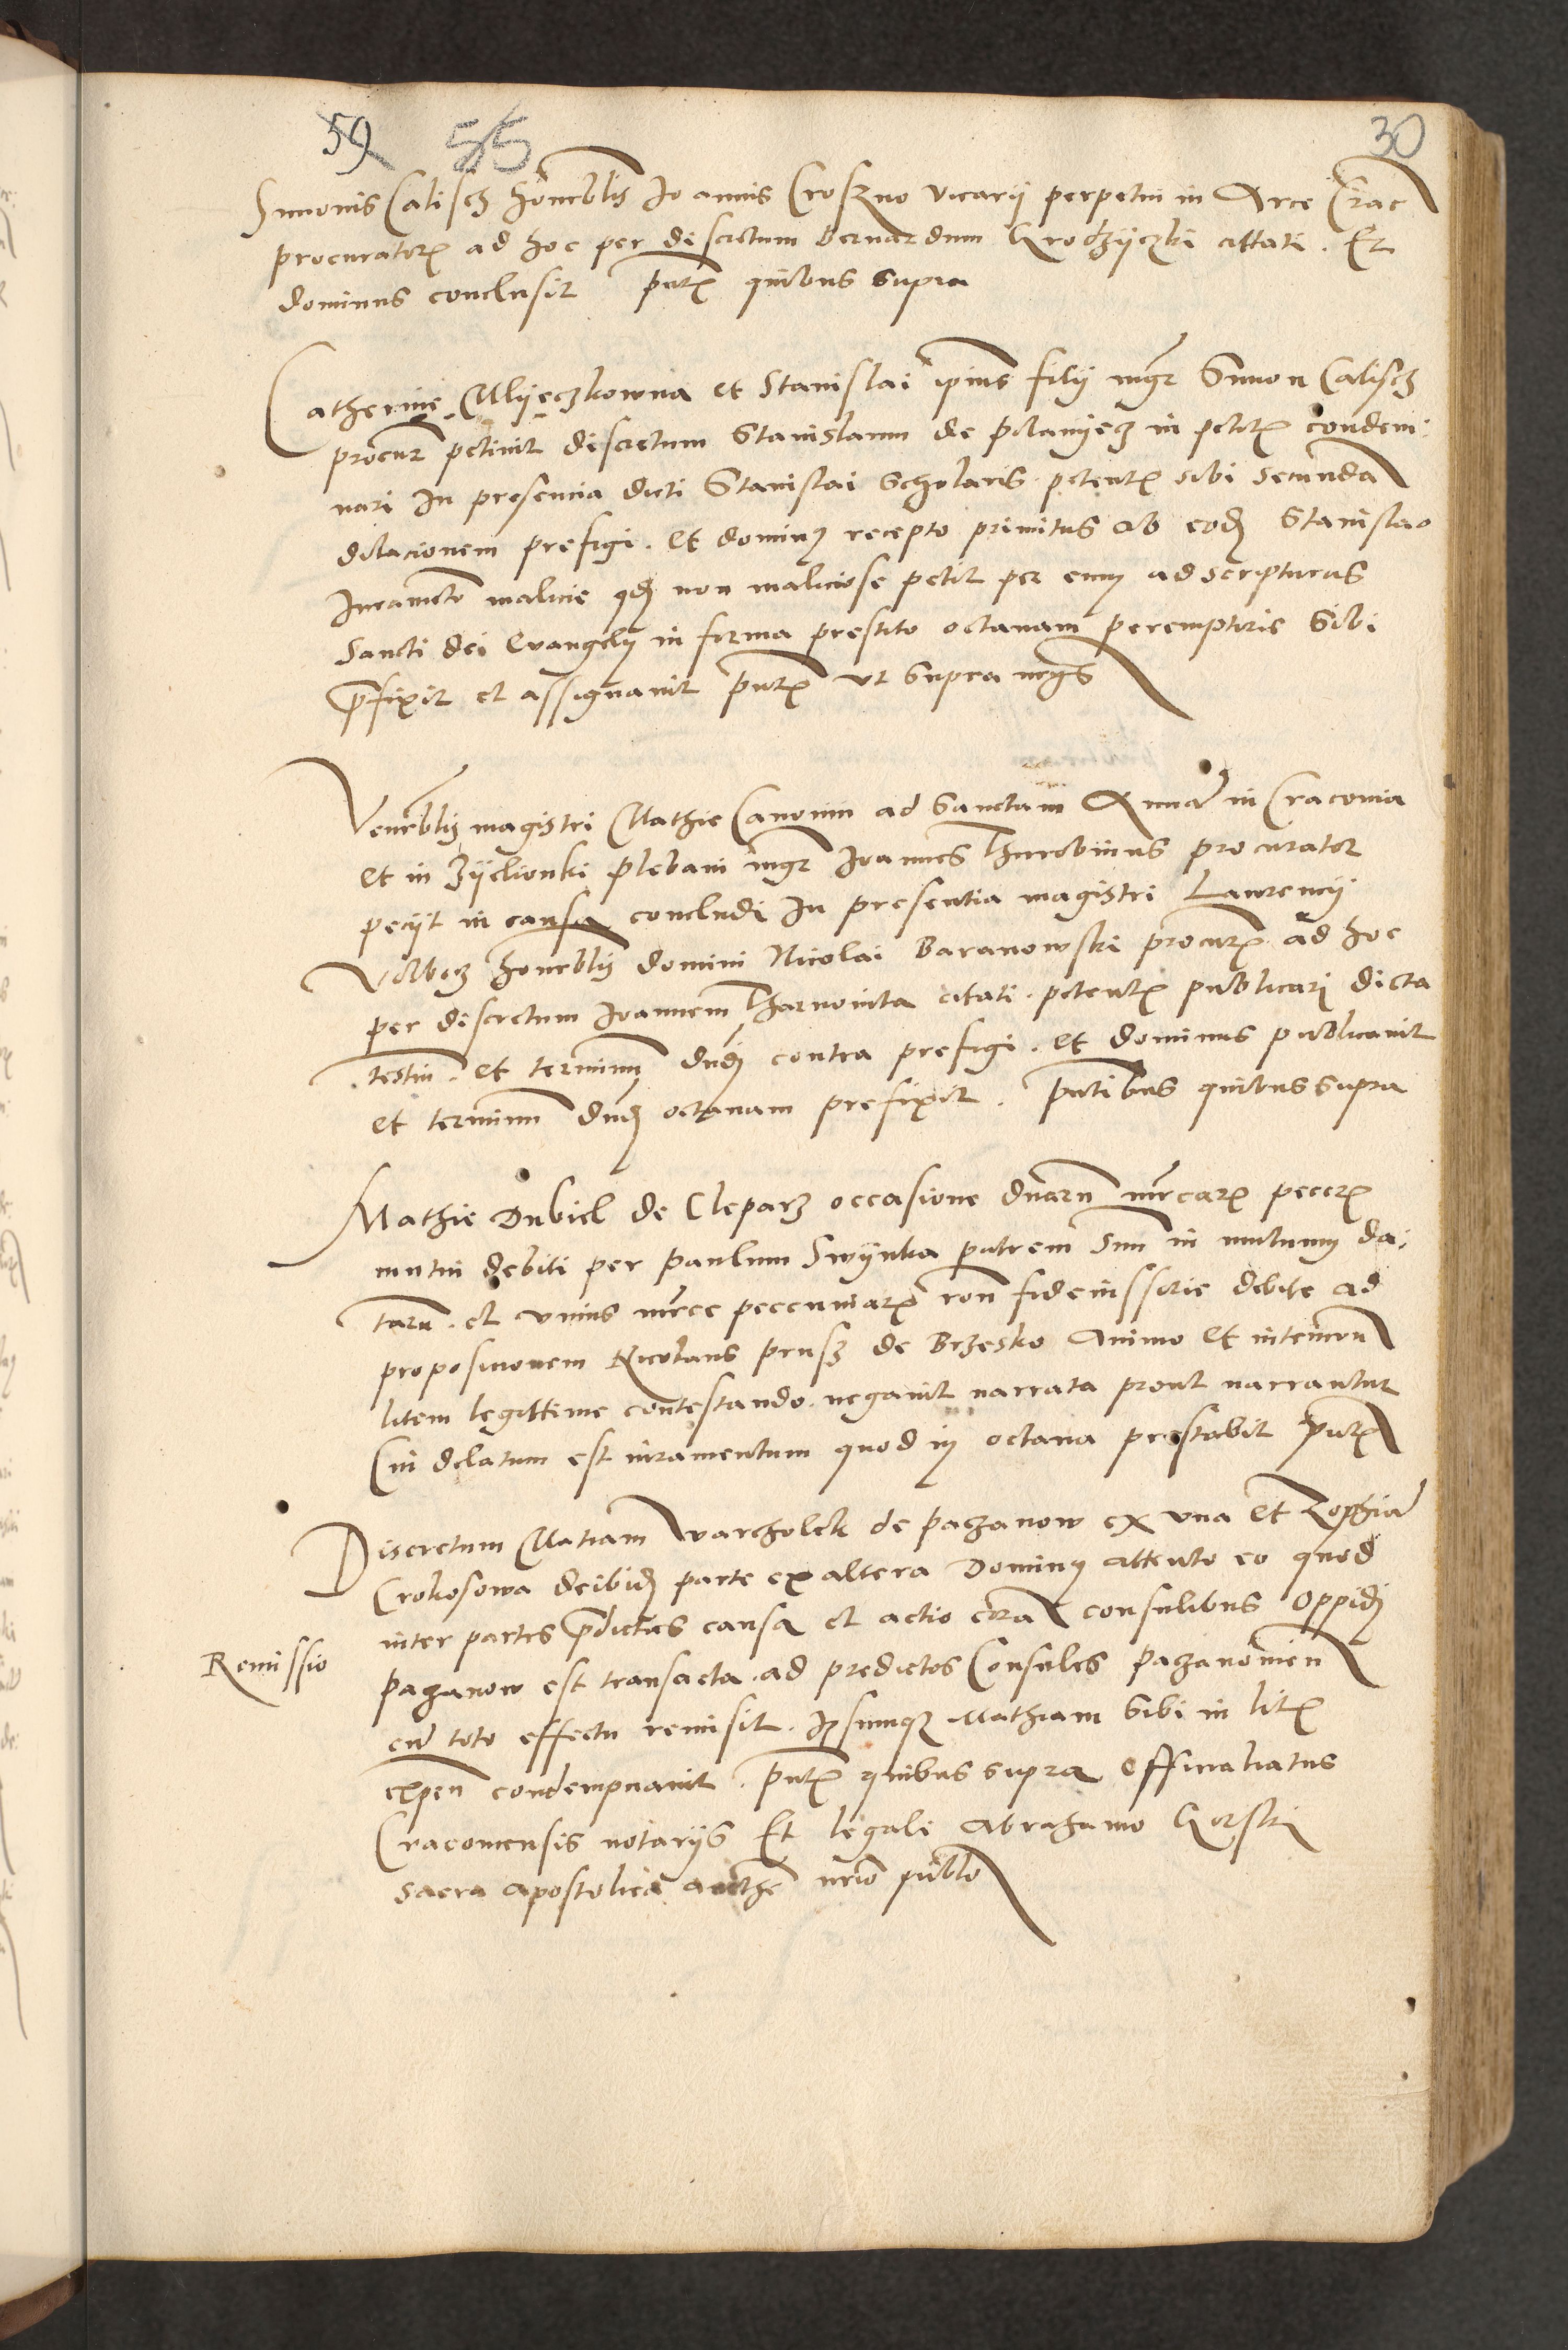 59 55 30
Simonis Calisch honorblis Joannis Croszno vicarij perpetui in Arce Crac
procuratorᵉ ad hoc per discretum Bernardum Grodzyczki cittati . Et
dominus conclusit pntᵉ quibus supra
Catherine Mlyeczkowna et Stanislai ipius filij mgr Simon Calisch
procur petivit discretum Stanislaum de Polanyecz in petitᵉ condem-
nari In presencia dicti Stanislai Scholaris petentᵉ sibi secunda
dilacionem prefigi . et dominus recepto primitus ab eodem Stanislao
Iuramento malicie qd non maliciose petit per eum ad scripturas
Sancti dei Evangelij in forma prestito octavam peremptorie sibi
prefixit et assignavit pntᵉ ut supra
Venerblis magistri Mathie Canonici ad Sanctam Anna in Cracovia
et in Zyelionki plebani mgr Joannes Thurobinus procurator
pecijt in causa concludi In presentia magistri Laurencij
honorblis domini Nicolai Baranowski procurᵉ ad hoc
per discretum Joannem Tharnovita citati . petentᵉ publicari dicta
testiu . et terminum dndi contra prefigi . et dominus publicavit
et terminum dndi octavam prefixit . pntibus quibus supra
Mathie Dubiel de Cleparz occasione duaru mrcarᵉ peccᵉ
mutui debiti per Paulum Swynka patrem suu in mutuum da-
taru . et unius mrce peccuniarᵉ ron fideiussorie debite ad
proposicionem Nicolaus Prusz de Brzesko Animo et intencon
litem legittime contestando negavit narrata prout narrantur
Cui delatum est iuramentum quod in octava prestabit pntᵉ
Discretum Matiam Warcholek de Paczanow ex una et Zophia
Crokosowa deibidem parte ex altera Dominus attento eo quod
inter partes predictas causa et actio cora consulibus Oppidi
Remissio
Paczanow est transacta . ad predictos Consules Paczanovien
cu toto effectu remisit . Ipsumque Mathiam sibi in litᵉ
expen condempnavit . pntᵉ quibus supra Officialiatus
Cracoviensis notarijs Et legali Abrahamo Gorski
sacra apostolica aucthe nrio publo